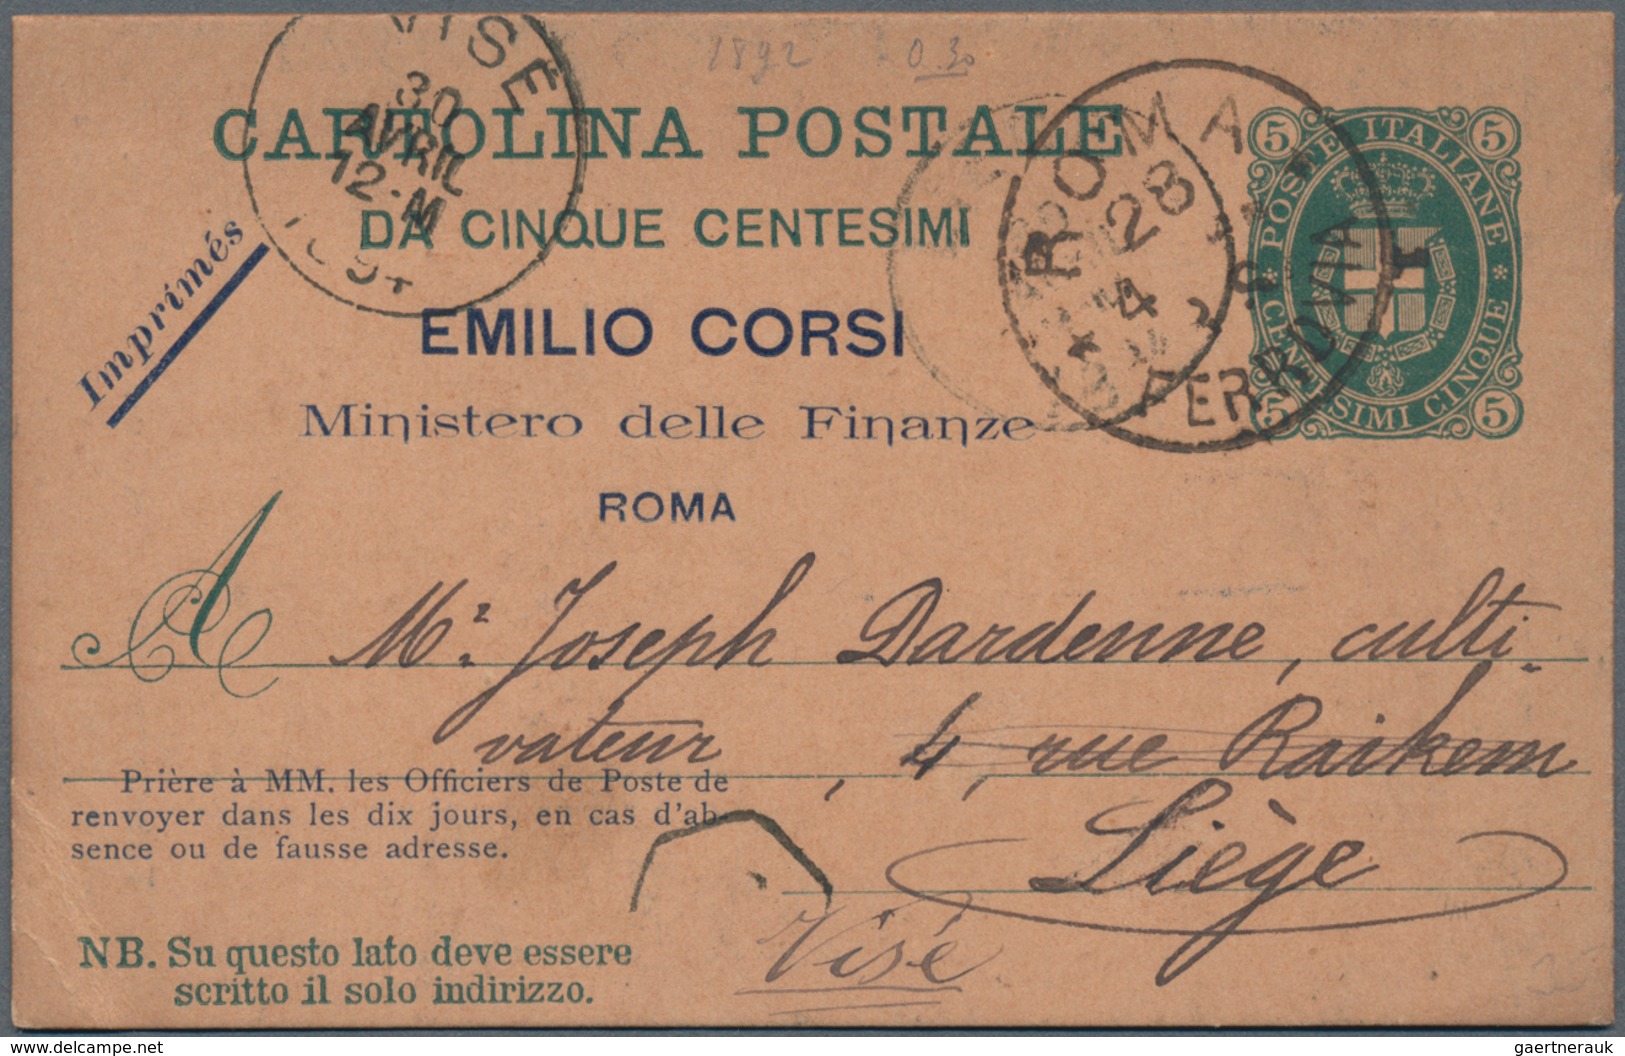 1892 0.30
VISÉ
30
AVRIL
12-M
CARTOLINA POSTALE
DA CINQUE CENTESIMI
ROMA
28
4
FERROVIA
5 5
POSTE ITALIANE
CENTESIMI CINQUE
5 5
Imprimés
EMILIO CORSI
Ministero delle Finanze
ROMA
A Mr. Joseph Dardenne, culti-
vateur, 4, rue Raikem
Liège
Visé
Prière à MM. les Officiers de Poste de
renvoyer dans les dix jours, en cas d'ab-
sence ou de fausse adresse.
NB. Su questo lato deve essere
scritto il solo indirizzo.
www.delcampe.net
gaertnerauk